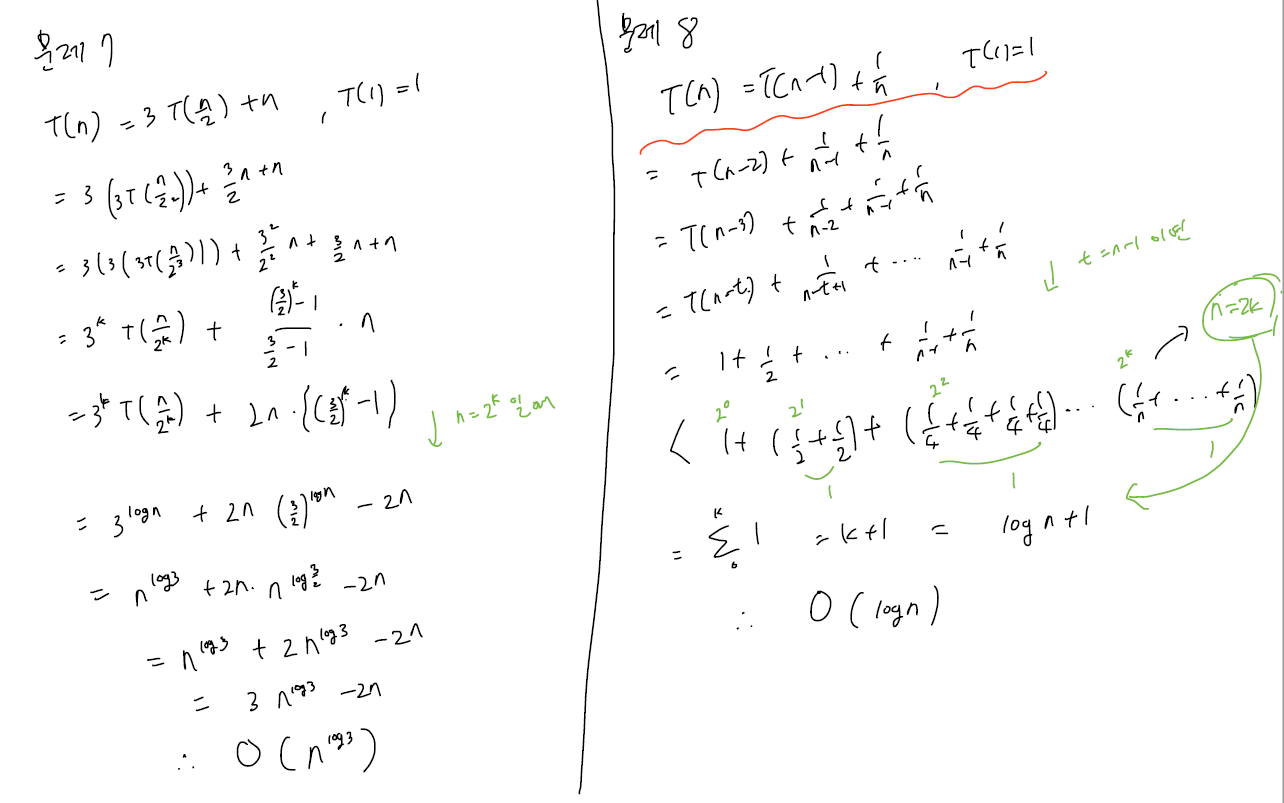 문제 7
T(n) = 3 T(n/2) + n , T(1) = 1
= 3 (3T(n/2²)) + 3/2 n + n
= 3(3(3T(n/2³))) + 3²/2² n + 3/2 n + n
= 3^k T(n/2^k) + ((3/2)^k - 1)/(3/2 - 1) · n
= 3^k T(n/2^k) + 2n · {(3/2)^k - 1}
↓ n = 2^k 일 때
= 3^logn + 2n (3/2)^logn - 2n
= n^log3 + 2n · n^log 3/2 - 2n
= n^log3 + 2n^log3 - 2n
= 3 n^log3 - 2n
∴ O(n^log3)
문제 8
T(n) = T(n-1) + 1/n , T(1) = 1
= T(n-2) + 1/n-1 + 1/n
= T(n-3) + 1/n-2 + 1/n-1 + 1/n
= T(n-t) + 1/n-t+1 + ... 1/n-1 + 1/n
↓ t = n-1 이면
= 1 + 1/2 + ... + 1/n-1 + 1/n
n = 2k
2^0 2^1 2^2 2^k
< 1 + (1/2 + 1/2) + (1/4 + 1/4 + 1/4 + 1/4) ... (1/n + ... + 1/n)
1 1 1
= k Σ 0 1 = k+1 = log n + 1
∴ O (logn)